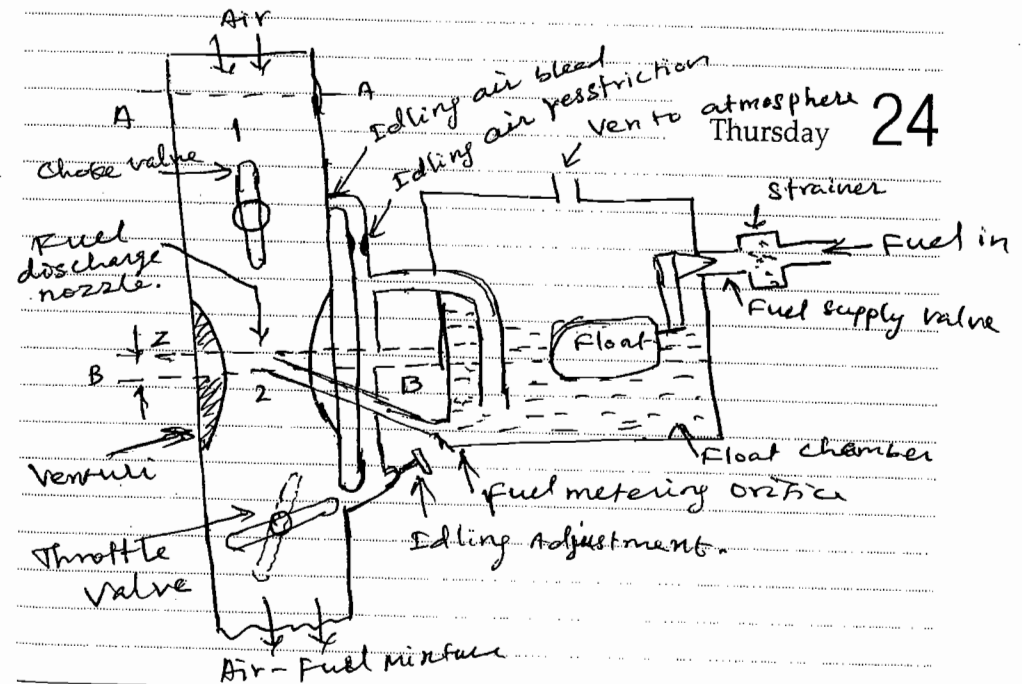 Air
A
A
1
Idling air bleed
Idling air resstriction
Ven to atmosphere
Thursday 24
Choke valve
Strainer
Fuel in
Fuel supply valve
Fuel
discharge
nozzle.
Float
Z
B
2
B
Venturi
Float chamber
Fuel metering orifice
Idling Adjustment.
Throttle
valve
Air-Fuel Mixture